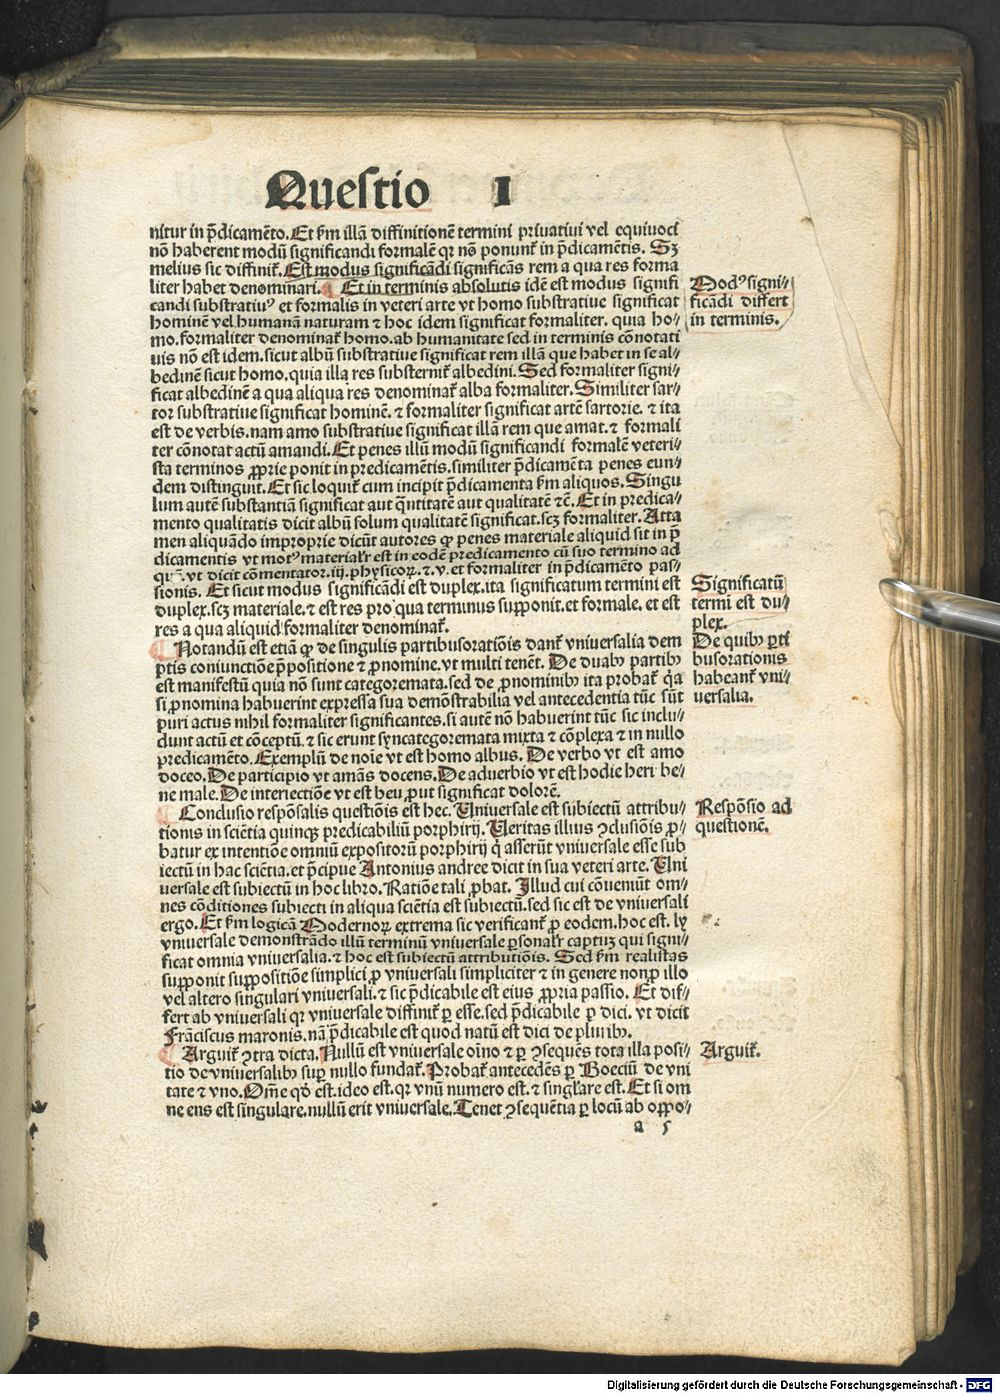 Questio 1
nitur in p̄dicamēto. Et ẜm illā diffinitionē termini priuatiui vel equiuoci
nō haberent modū significandi formalē qꝛ nō ponunt᷑ in p̄dicamētis. Sꝫ
melius sic diffinit᷑. Est modus significādi significās rem a qua res forma
liter habet denominari. ¶ Et in terminis absolutis idē est modus signifi
candi substratiuꝰ et formalis in veteri arte vt homo substratiue significat
hominē vel humanā naturam ⁊ hoc idem significat formaliter. quia ho⸗
mo. formaliter denominat᷑ homo. ab humanitate sed in terminis cōnotati
uis nō est idem. sicut albū substratiue significat rem illā que habet in se al⸗
bedinē sicut homo. quia illa res substernit᷑ albedini. Sed formaliter signi⸗
ficat albedinē a qua aliqua res denominat᷑ alba formaliter. Similiter sar⸗
tor substratiue significat hominē. ⁊ formaliter significat artē sartorie. ⁊ ita
est de verbis. nam amo substratiue significat illā rem que amat. ⁊ formali
ter cōnotat actū amandi. Et penes illū modū significandi formalē veteri⸗
sta terminos ꝓprie ponit in predicamētis. similiter p̄dicamēta penes eun⸗
dem distinguit. Et sic loquit᷑ cum incipit p̄dicamenta ẜm aliquos. Singu
lum autē substantiā significat aut q̄ntitatē aut qualitatē ⁊c̄. Et in predica⸗
mento qualitatis dicit albū solum qualitatē significat. scꝫ formaliter. Atta
men aliquādo improprie dicūt autores ꝙ penes materiale aliquid sit in p̄
dicamentis vt motꝰ materialr̄ est in eodē predicamento cū suo termino ad
quē. vt dicit cōmentator. iij. physicoꝝ. ⁊. v. et formaliter in p̄dicamēto pas⸗
sionis. Et sicut modus significādi est duplex. ita significatum termini est
duplex. scꝫ materiale. ⁊ est res pro qua terminus supponit. et formale. et est
res a qua aliquid formaliter denominat᷑.
¶ Notandū est etiā ꝙ de singulis partibusorationis dant᷑ vniuersalia dem
ptis coniunctiōe p̄positione ⁊ ꝓnomine. vt multi tenēt. De duabꝫ partibꝫ
est manifestū quia nō sunt categoremata. sed de ꝓnominibꝫ ita probat᷑ q̄a
si ꝓnomina habuerint expressa sua demōstrabilia vel antecedentia tūc sūt
puri actus nihil formaliter significantes. si autē nō habuerint tūc sic inclu⸗
dunt actū et cōceptū. ⁊ sic erunt syncategoremata mixta ⁊ cōplexa ⁊ in nullo
predicamēto. Exemplū de noīe vt est homo albus. De verbo vt est amo
doceo. De participio vt amās docens. De aduerbio vt est hodie heri be⸗
ne male. De interiectiōe vt est heu ꝓut significat dolorē.
¶ Conclusio respōsalis questiōis est hec. Uniuersale est subiectū attribu⸗
tionis in sciētia quinqꝫ predicabiliū porphirij. Ueritas illius ꝯclusiōis ꝓ⸗
batur ex intentiōe omniū expositorū porphirij q̄ asserūt vniuersale esse sub
iectū in hac sciētia. et p̄cipue Antonius andree dicit in sua veteri arte. Uni
uersale est subiectū in hoc libro. Ratiōe tali ꝓbat. Illud cui cōueniūt om⸗
nes cōditiones subiecti in aliqua sciētia est subiectū. sed sic est de vniuersali
ergo. Et ẜm logicā Modernoꝝ extrema sic verificant᷑ ꝓ eodem. hoc est. ly
vniuersale demonstrādo illū terminū vniuersale ꝑsonalr̄ captuꝫ qui signi⸗
ficat omnia vniuersalia. ⁊ hoc est subiectū attributiōis. Sed ẜm realistas
supponit suppositiōe simplici ꝓ vniuersali simpliciter ⁊ in genere non ꝓ illo
vel altero singulari vniuersali. ⁊ sic p̄dicabile est eius ꝓpria passio. Et dif⸗
fert ab vniuersali qꝛ vniuersale diffinit᷑ ꝑ esse. sed p̄dicabile ꝑ dici. vt dicit
Frāciscus maronis. nā p̄dicabile est quod natū est dici de pluribꝫ.
¶ Arguit᷑ ꝯtra dicta. Nullū est vniuersale oīno ⁊ ꝑ ꝯsequēs tota illa posi⸗
tio de vniuersalibꝫ suꝑ nullo fundat᷑. Probat᷑ antecedēs ꝑ Boeciū de vni
tate ⁊ vno. Om̄e qd̓ est. ideo est. qꝛ vnū numero est. ⁊ singl̓are est. Et si om
ne ens est singulare. nullū erit vniuersale. Tenet ꝯsequētia ꝑ locū ab oppo⸗
a 5
Modꝰ signi⸗
ficādi differt
in terminis.
Significatū
termi est du⸗
plex.
De quibꝫ ꝑti
busorationis
habeant᷑ vni⸗
uersalia.
Respōsio ad
questionē.
Arguit᷑.
Digitalisierung gefördert durch die Deutsche Forschungsgemeinschaft - DFG